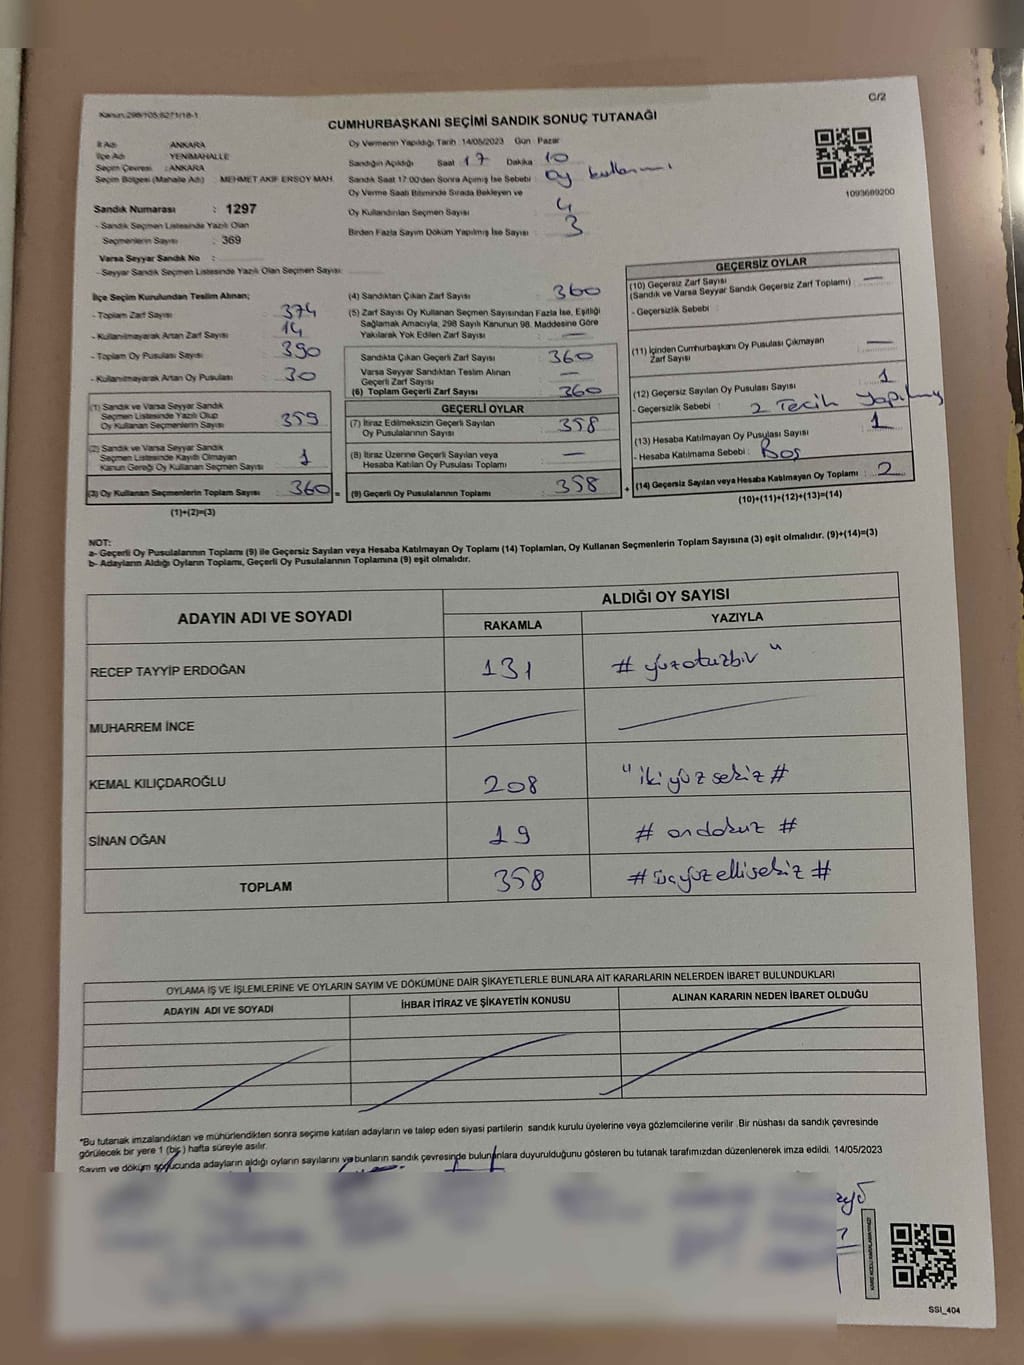 Kanun:298/105;6271/18-1
C/2
CUMHURBAŞKANI SEÇİMİ SANDIK SONUÇ TUTANAĞI
İl Adı ANKARA
İlçe Adı YENİMAHALLE
Seçim Çevresi : ANKARA
Seçim Bölgesi (Mahalle Adı) MEHMET AKİF ERSOY MAH.
Sandık Numarası : 1297
- Sandık Seçmen Listesinde Yazılı Olan
Seçmenlerin Sayısı : 369
Varsa Seyyar Sandık No :
- Seyyar Sandık Seçmen Listesinde Yazılı Olan Seçmen Sayısı:
Oy Vermenin Yapıldığı Tarih :14/05/2023 Gün : Pazar
Sandığın Açıldığı Saat 17 Dakika 10
Sandık Saat 17:00'den Sonra Açılmış İse Sebebi : oy kullanımı
Oy Verme Saati Bitiminde Sırada Bekleyen ve
Oy Kullandırılan Seçmen Sayısı : 4
Birden Fazla Sayım Döküm Yapılmış İse Sayısı : 3
1093669200
İlçe Seçim Kurulundan Teslim Alınan;
- Toplam Zarf Sayısı : 374
- Kullanılmayarak Artan Zarf Sayısı : 14
- Toplam Oy Pusulası Sayısı : 390
- Kullanılmayarak Artan Oy Pusulası : 30
(1) Sandık ve Varsa Seyyar Sandık
Seçmen Listesinde Yazılı Olup
Oy Kullanan Seçmenlerin Sayısı : 359
(2) Sandık ve Varsa Seyyar Sandık
Seçmen Listesinde Kayıtlı Olmayan
Kanun Gereği Oy Kullanan Seçmen Sayısı : 1
(3) Oy Kullanan Seçmenlerin Toplam Sayısı : 360 =
(1)+(2)=(3)
(4) Sandıktan Çıkan Zarf Sayısı : 360
(5) Zarf Sayısı Oy Kullanan Seçmen Sayısından Fazla İse, Eşitliği
Sağlamak Amacıyla, 298 Sayılı Kanunun 98. Maddesine Göre
Yakılarak Yok Edilen Zarf Sayısı : —
Sandıkta Çıkan Geçerli Zarf Sayısı : 360
Varsa Seyyar Sandıktan Teslim Alınan
Geçerli Zarf Sayısı : —
(6) Toplam Geçerli Zarf Sayısı : 360
GEÇERLİ OYLAR
(7) İtiraz Edilmeksizin Geçerli Sayılan
Oy Pusulalarının Sayısı : 358
(8) İtiraz Üzerine Geçerli Sayılan veya
Hesaba Katılan Oy Pusulası Toplamı : —
(9) Geçerli Oy Pusulalarının Toplamı : 358 +
GEÇERSİZ OYLAR
(10) Geçersiz Zarf Sayısı
(Sandık ve Varsa Seyyar Sandık Geçersiz Zarf Toplamı) : —
- Geçersizlik Sebebi :
(11) İçinden Cumhurbaşkanı Oy Pusulası Çıkmayan
Zarf Sayısı : —
(12) Geçersiz Sayılan Oy Pusulası Sayısı : 1
- Geçersizlik Sebebi : 2 Tecih Yapılmış
(13) Hesaba Katılmayan Oy Pusulası Sayısı : 1
- Hesaba Katılmama Sebebi : Boş
(14) Geçersiz Sayılan veya Hesaba Katılmayan Oy Toplamı : 2
(10)+(11)+(12)+(13)=(14)
NOT:
a- Geçerli Oy Pusulalarının Toplamı (9) ile Geçersiz Sayılan veya Hesaba Katılmayan Oy Toplamı (14) Toplamları, Oy Kullanan Seçmenlerin Toplam Sayısına (3) eşit olmalıdır. (9)+(14)=(3)
b- Adayların Aldığı Oyların Toplamı, Geçerli Oy Pusulalarının Toplamına (9) eşit olmalıdır.
ADAYIN ADI VE SOYADI ALDIĞI OY SAYISI
RAKAMLA YAZIYLA
RECEP TAYYİP ERDOĞAN 131 # yüzotuzbir "
MUHARREM İNCE
KEMAL KILIÇDAROĞLU 208 " ikiyüzsekiz #
SİNAN OĞAN 19 # ondokuz #
TOPLAM 358 # üçyüzellisekiz #
OYLAMA İŞ VE İŞLEMLERİNE VE OYLARIN SAYIM VE DÖKÜMÜNE DAİR ŞİKAYETLERLE BUNLARA AİT KARARLARIN NELERDEN İBARET BULUNDUKLARI
ADAYIN ADI VE SOYADI İHBAR İTİRAZ VE ŞİKAYETİN KONUSU ALINAN KARARIN NEDEN İBARET OLDUĞU
*Bu tutanak imzalandıktan ve mühürlendikten sonra seçime katılan adayların ve talep eden siyasi partilerin sandık kurulu üyelerine veya gözlemcilerine verilir. Bir nüshası da sandık çevresinde
görülecek bir yere 1 (bir) hafta süreyle asılır.
Sayım ve döküm sonucunda adayların aldığı oyların sayılarını ve bunların sandık çevresinde bulunanlara duyurulduğunu gösteren bu tutanak tarafımızdan düzenlenerek imza edildi. 14/05/2023
SSI_404